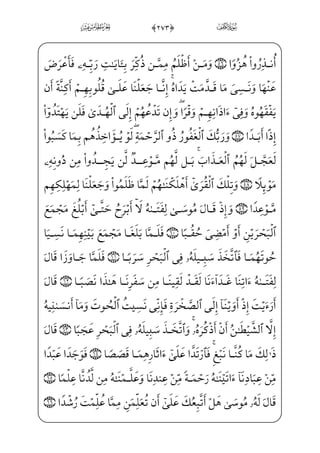 سُورَةُ الْكَهْفِ ﴿٢٧٣﴾ الجُزْءُ الخَامِسَ عَشَرَ
أُنذِرُوا۟ هُزُوًا ۝ وَمَنْ أَظْلَمُ مِمَّن ذُكِّرَ بِـَٔايَـٰتِ رَبِّهِۦ فَأَعْرَضَ
عَنْهَا وَنَسِىَ مَا قَدَّمَتْ يَدَاهُ ۚ إِنَّا جَعَلْنَا عَلَىٰ قُلُوبِهِمْ أَكِنَّةً أَن
يَفْقَهُوهُ وَفِىٓ ءَاذَانِهِمْ وَقْرًا ۖ وَإِن تَدْعُهُمْ إِلَى ٱلْهُدَىٰ فَلَن يَهْتَدُوٓا۟
إِذًا أَبَدًا ۝ وَرَبُّكَ ٱلْغَفُورُ ذُو ٱلرَّحْمَةِ ۖ لَوْ يُؤَاخِذُهُم بِمَا كَسَبُوا۟
لَعَجَّلَ لَهُمُ ٱلْعَذَابَ ۚ بَل لَّهُم مَّوْعِدٌ لَّن يَجِدُوا۟ مِن دُونِهِۦ
مَوْئِلًا ۝ وَتِلْكَ ٱلْقُرَىٰٓ أَهْلَكْنَـٰهُمْ لَمَّا ظَلَمُوا۟ وَجَعَلْنَا لِمَهْلِكِهِم
مَّوْعِدًا ۝ وَإِذْ قَالَ مُوسَىٰ لِفَتَىٰهُ لَآ أَبْرَحُ حَتَّىٰٓ أَبْلُغَ مَجْمَعَ
ٱلْبَحْرَيْنِ أَوْ أَمْضِىَ حُقُبًا ۝ فَلَمَّا بَلَغَا مَجْمَعَ بَيْنِهِمَا نَسِيَا
حُوتَهُمَا فَٱتَّخَذَ سَبِيلَهُۥ فِى ٱلْبَحْرِ سَرَبًا ۝ فَلَمَّا جَاوَزَا قَالَ
لِفَتَىٰهُ ءَاتِنَا غَدَآءَنَا لَقَدْ لَقِينَا مِن سَفَرِنَا هَـٰذَا نَصَبًا ۝ قَالَ
أَرَءَيْتَ إِذْ أَوَيْنَآ إِلَى ٱلصَّخْرَةِ فَإِنِّى نَسِيتُ ٱلْحُوتَ وَمَآ أَنسَىٰنِيهُ
إِلَّا ٱلشَّيْطَـٰنُ أَنْ أَذْكُرَهُۥ ۚ وَٱتَّخَذَ سَبِيلَهُۥ فِى ٱلْبَحْرِ عَجَبًا ۝ قَالَ
ذَٰلِكَ مَا كُنَّا نَبْغِ ۚ فَٱرْتَدَّا عَلَىٰٓ ءَاثَارِهِمَا قَصَصًا ۝ فَوَجَدَا عَبْدًا
مِّنْ عِبَادِنَآ ءَاتَيْنَـٰهُ رَحْمَةً مِّنْ عِندِنَا وَعَلَّمْنَـٰهُ مِن لَّدُنَّا عِلْمًا ۝
قَالَ لَهُۥ مُوسَىٰ هَلْ أَتَّبِعُكَ عَلَىٰٓ أَن تُعَلِّمَنِ مِمَّا عُلِّمْتَ رُشْدًا ۝